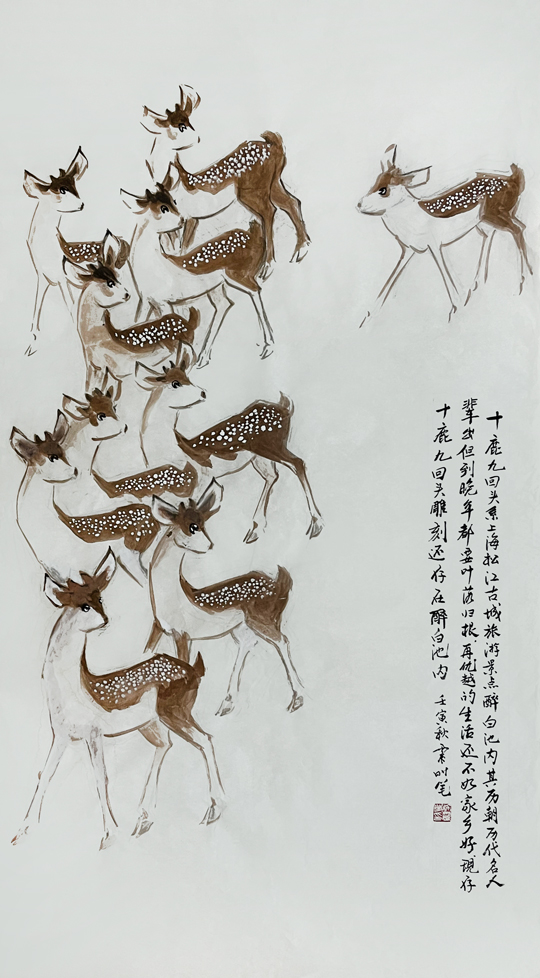 十鹿九回头系上海松江古城旅游景点醉白池内其历朝历代名人
辈出但到晚年都要叶落归根.再优越的生活还不如家乡好现存
十鹿九回头雕刻还存在醉白池内 壬寅秋